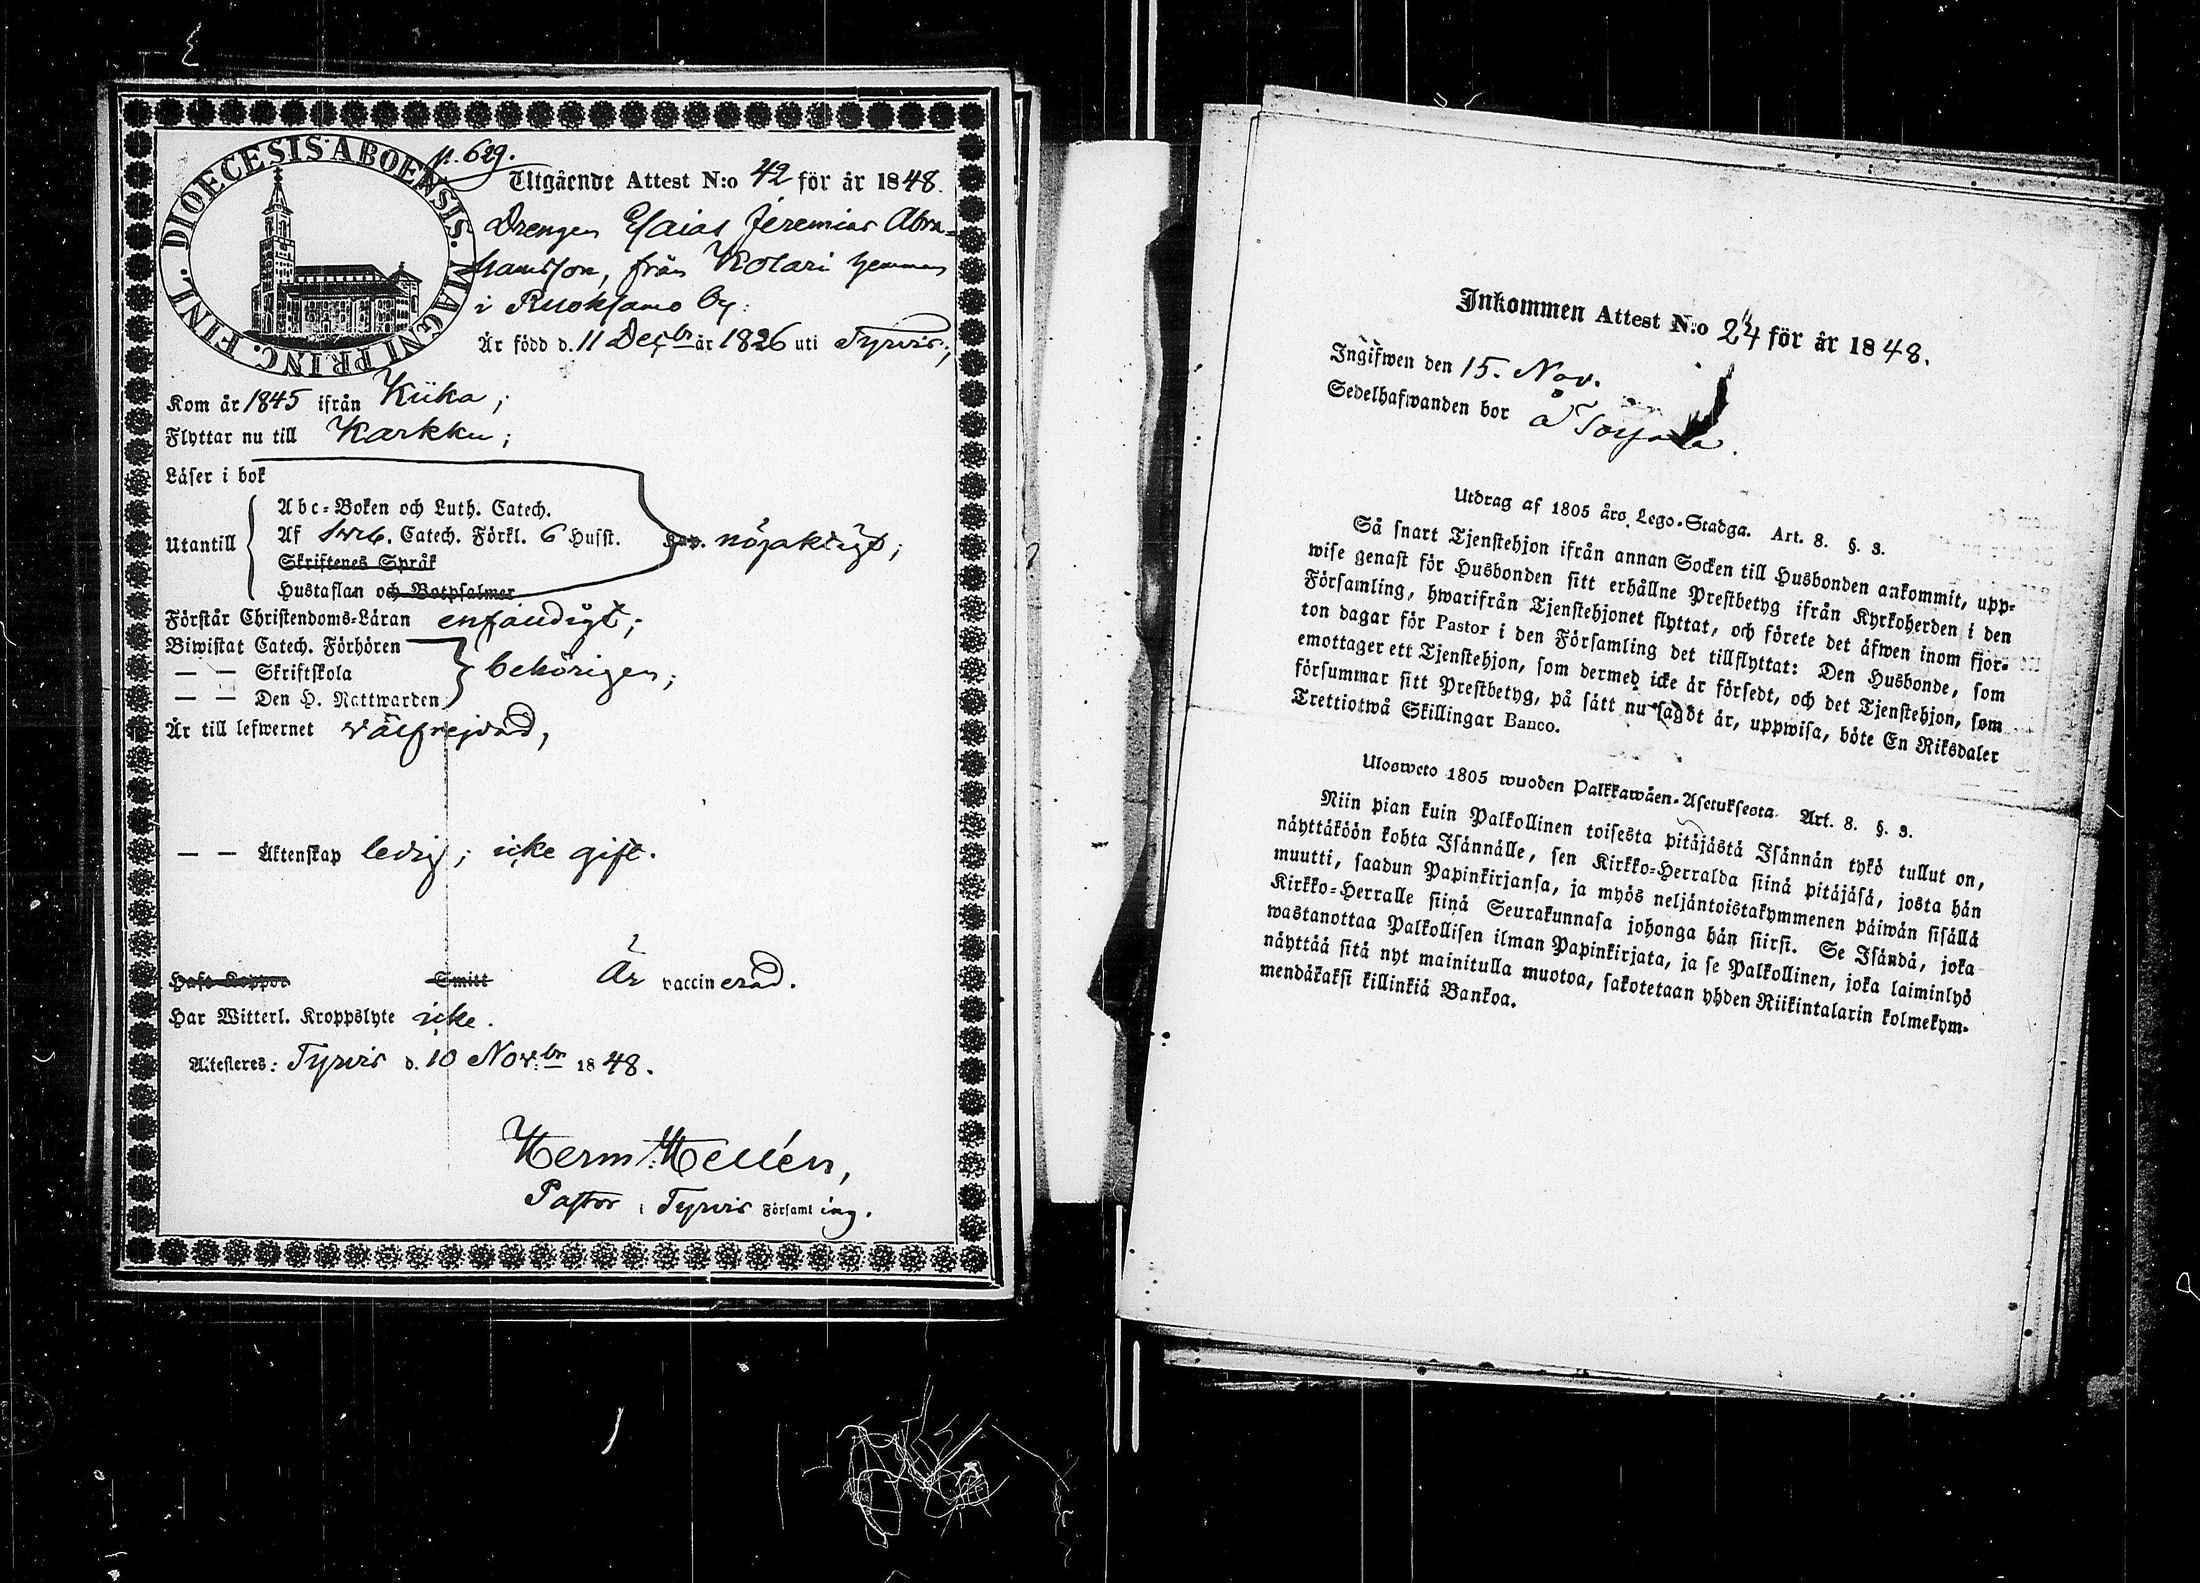 DIOECESIS ABOENSIS. MAGNI PRINC. FINL.
p. 629.
Utgående Attest N:o 42 för år 1848.
Drengen Esaias Jeremias Abra-
hamsson, från Kolari hemman
i Ruoksamo by.
Är född d. 11 Decbr år 1826 uti Tyrvis;
Kom år 1845 ifrån Kiika;
Flyttar nu till Karkku;
Läser i bok
Utantill
Abc-Boken och Luth. Catech.
Af Sveb. Catech. Förkl. 6 Hufst.
nöjaktigt;
Skriftenes Språk
Hustaflan och Botpsalmer
Förstår Christendoms-Läran enfaldigt;
Biwistat Catech. Förhören
— — Skriftskola
behörigen;
— — Den H. Nattwarden
Är till lefwernet välfrejdad,
— — Äktenskap ledig; icke gift.
Haft Koppor Smitt Är vaccinerad.
Har Witterl. Kroppslyte icke.
Attesteres: Tyrvis d. 10 Novbr 1848.
Herm: Hellén,
Pastor i Tyrvis Församling.
Inkommen Attest N:o 24 för år 1848.
Ingifwen den 15. Nov.
Sedelhafwanden bor å
Utdrag af 1805 års Lego-Stadga. Art. 8. §. 3.
Så snart Tjenstehjon ifrån annan Socken till Husbonden ankommit, upp-
wise genast för Husbonden sitt erhållne Prestbetyg ifrån Kyrkoherden i den
Församling, hwarifrån Tjenstehjonet flyttat, och förete det äfwen inom fjor-
ton dagar för Pastor i den Församling det tillflyttat: Den Husbonde, som
emottager ett Tjenstehjon, som dermed icke är försedt, och det Tjenstehjon, som
försummar sitt Prestbetyg, på sätt nu sagdt är, uppwisa, böte En Riksdaler
Trettiotwå Skillingar Banco.
Ulosweto 1805 wuoden Palkkawäen-Asetuksesta Art. 8. §. 3.
Niin pian kuin Palkollinen toisesta pitäjästä Isännän tykö tullut on,
näyttäköön kohta Isännälle, sen Kirkko-Herralda siinä pitäjäsä, josta hän
muutti, saadun Papinkirjansa, ja myös neljäntoistakymmenen päiwän sisällä
Kirkko-Herralle siinä Seurakunnasa johonga hän siirsi. Se Isändä, joka
wastanottaa Palkollisen ilman Papinkirjata, ja se Palkollinen, joka laiminlyö
näyttää sitä nyt mainitulla muotoa, sakotetaan yhden Riikintalarin kolmekym-
mendäkaksi killinkiä Bankoa.